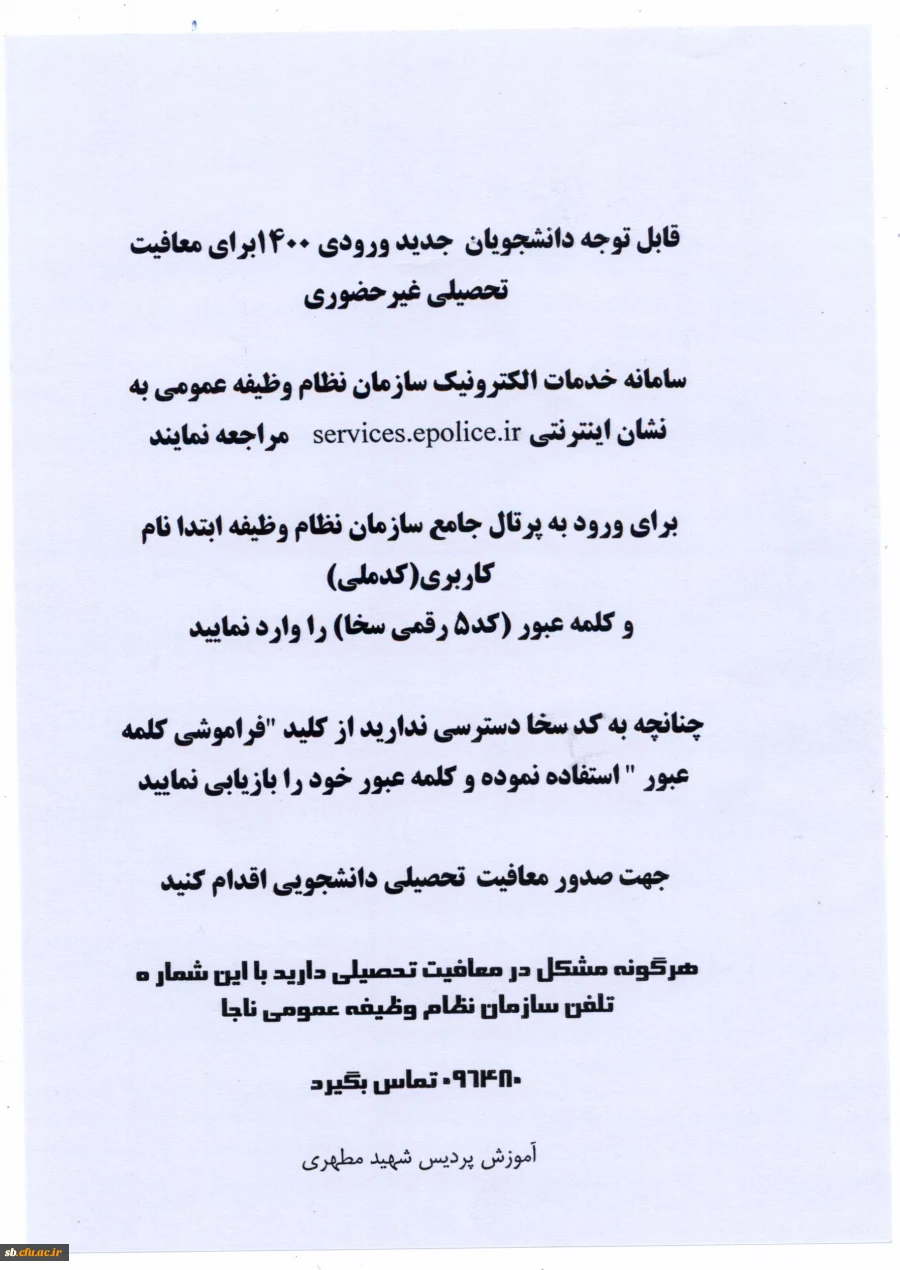 قابل توجه دانشجویان جدید ورودی ۱۴۰۰برای معافیت
تحصیلی غیرحضوری
سامانه خدمات الکترونیک سازمان نظام وظیفه عمومی به
نشان اینترنتی services.epolice.ir مراجعه نمایند
برای ورود به پرتال جامع سازمان نظام وظیفه ابتدا نام
کاربری(کدملی)
و کلمه عبور (کد۵ رقمی سخا) را وارد نمایید
چنانچه به کد سخا دسترسی ندارید از کلید "فراموشی کلمه
عبور " استفاده نموده و کلمه عبور خود را بازیابی نمایید
جهت صدور معافیت تحصیلی دانشجویی اقدام کنید
هرگونه مشکل در معافیت تحصیلی دارید با این شمار ه
تلفن سازمان نظام وظیفه عمومی ناجا
۰۹۶۴۸۰ تماس بگیرد
آموزش پردیس شهید مطهری
sb.cfu.ac.ir